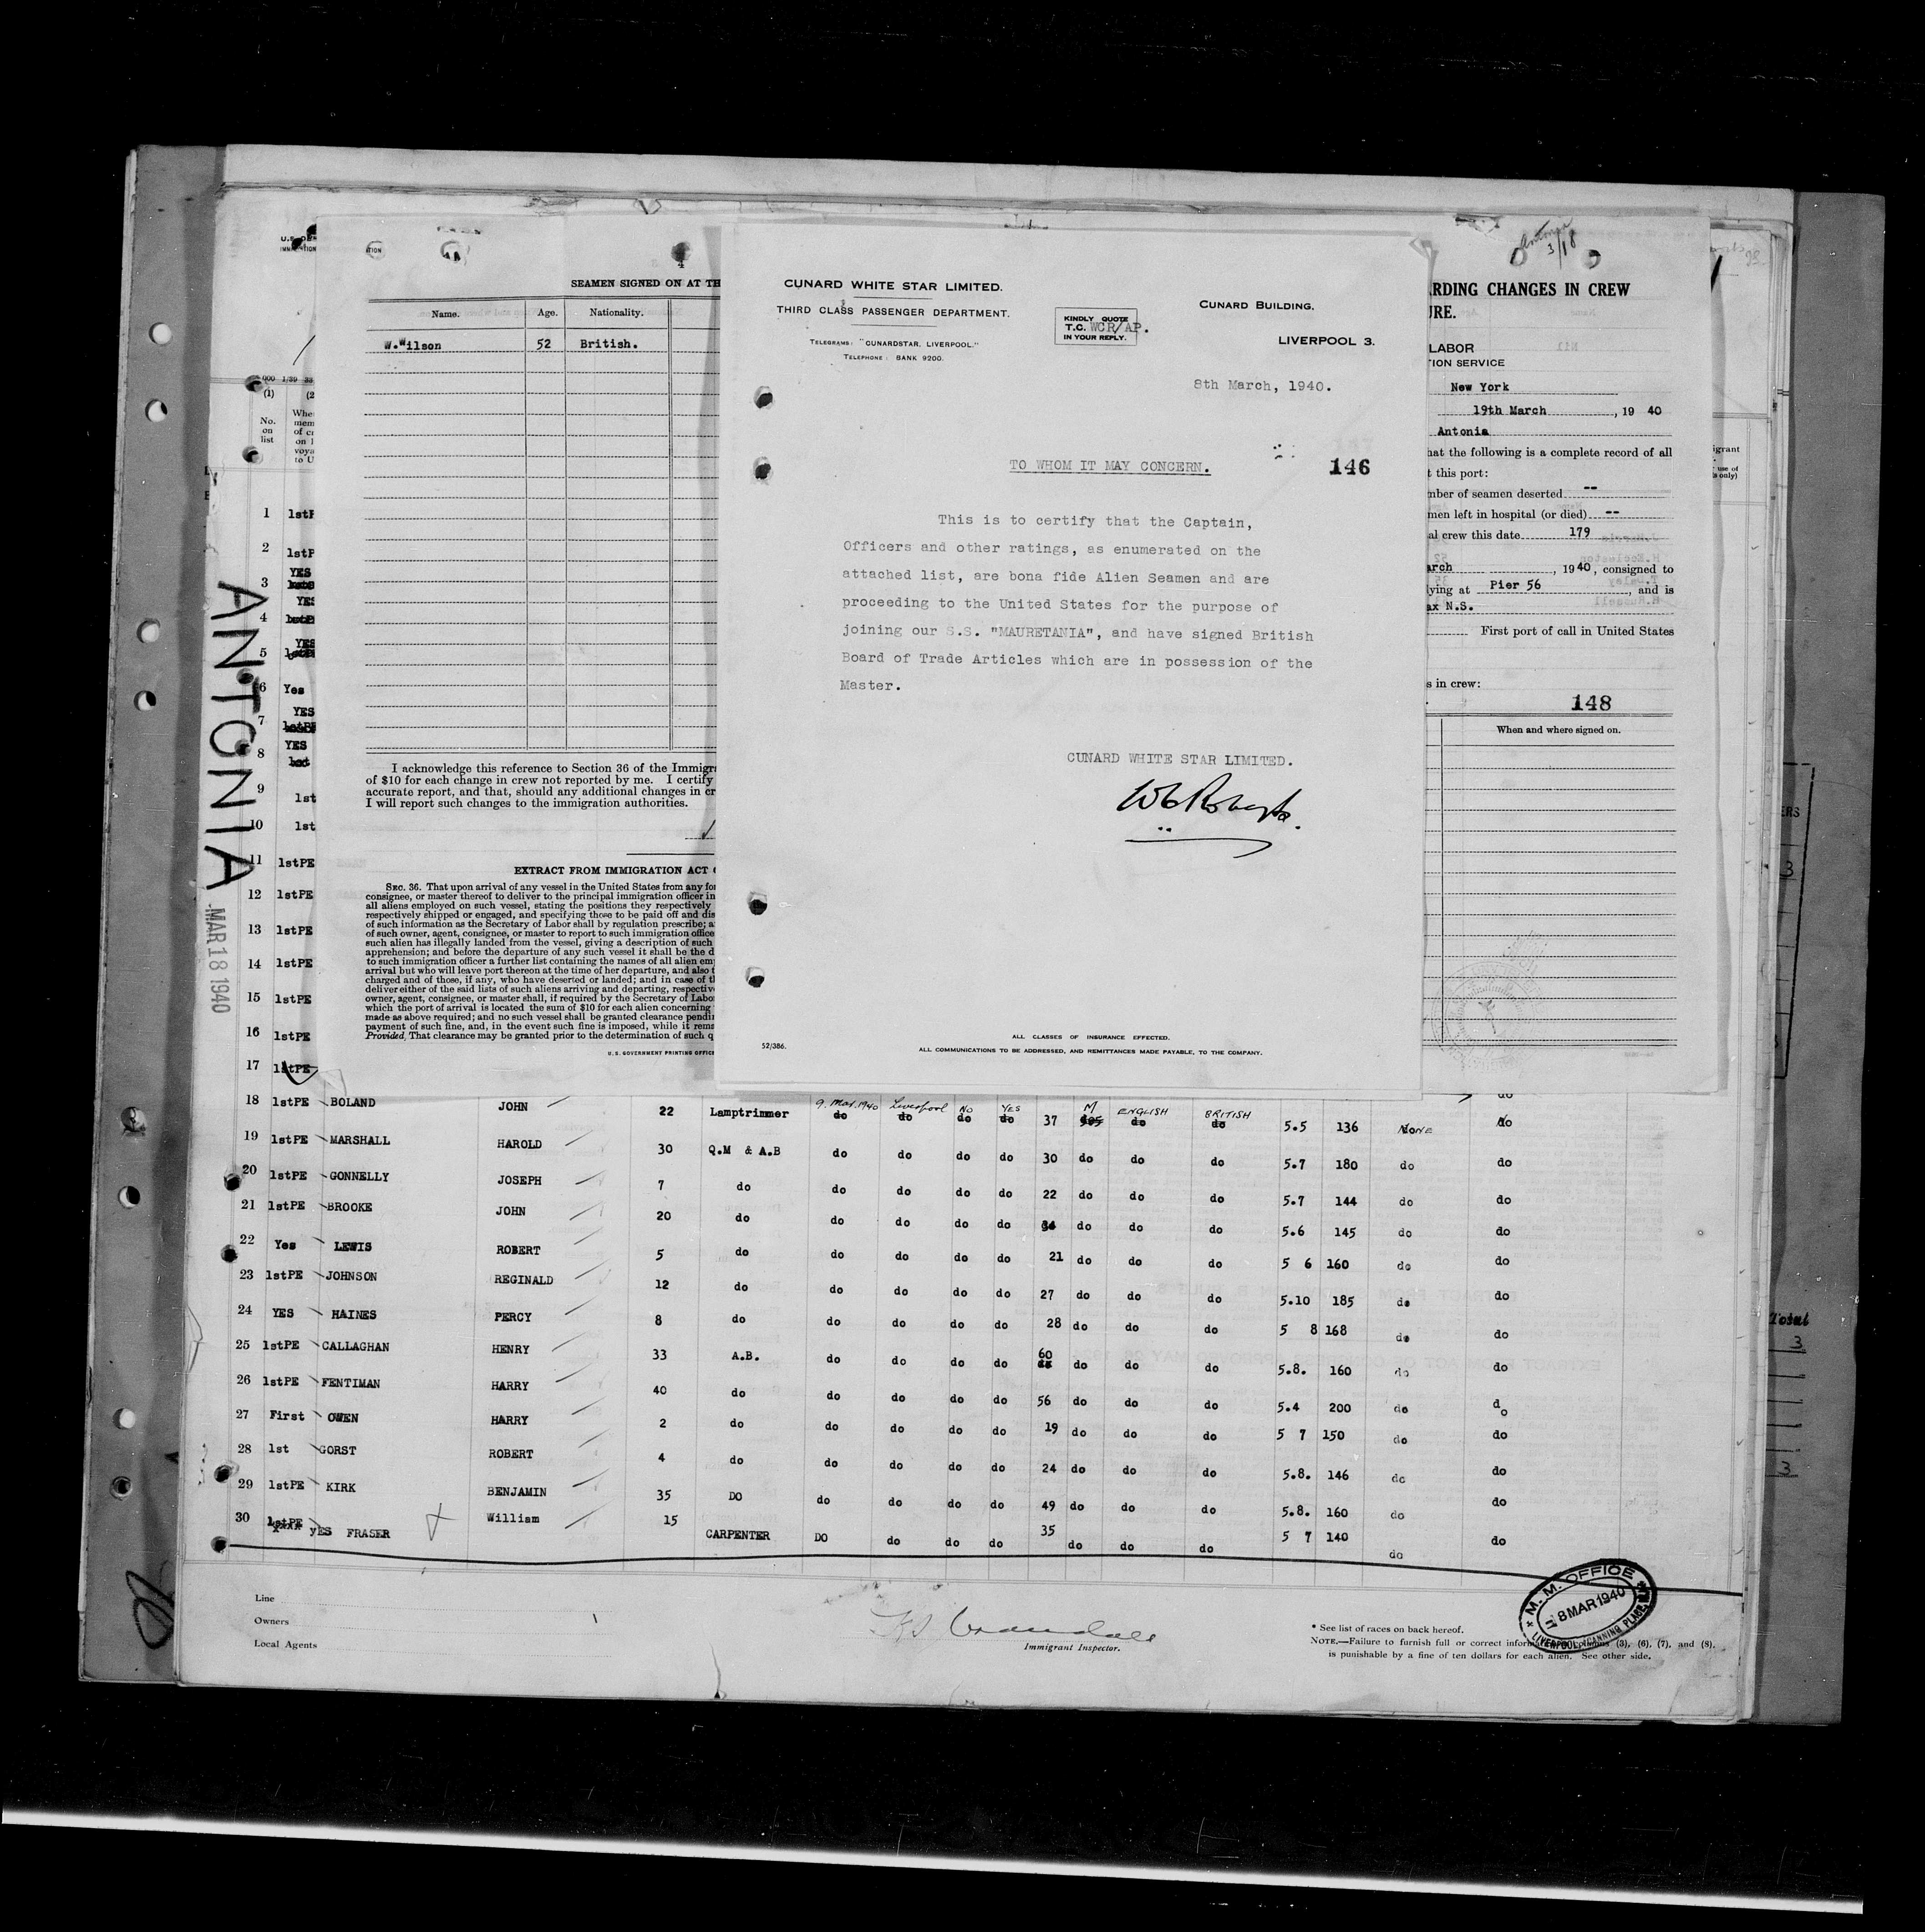 U.S. DE
IMM TION
ATION
4
SEAMEN SIGNED ON AT TH
Name. Age. Nationality.
W.Wilson 52 British.
I acknowledge this reference to Section 36 of the Immigr
of $10 for each change in crew not reported by me. I certify
accurate report, and that, should any additional changes in cr
I will report such changes to the immigration authorities.
EXTRACT FROM IMMIGRATION ACT
SEC. 36. That upon arrival of any vessel in the United States from any for
consignee, or master thereof to deliver to the principal immigration officer in
all aliens employed on such vessel, stating the positions they respectively
respectively shipped or engaged, and specifying those to be paid off and dis
of such information as the Secretary of Labor shall by regulation prescribe; a
of such owner, agent, consignee, or master to report to such immigration office
such alien has illegally landed from the vessel, giving a description of such
apprehension; and before the departure of any such vessel it shall be the d
to such immigration officer a further list containing the names of all alien em
arrival but who will leave port thereon at the time of her departure, and also t
charged and of those, if any, who have deserted or landed; and in case of t
deliver either of the said lists of such aliens arriving and departing, respectiv
owner, agent, consignee, or master shall, if required by the Secretary of Labo
which the port of arrival is located the sum of $10 for each alien concerning
made as above required; and no such vessel shall be granted clearance pendi
payment of such fine, and, in the event such fine is imposed, while it rema
Provided, That clearance may be granted prior to the determination of such q
U. S. GOVERNMENT PRINTING OFFICE
CUNARD WHITE STAR LIMITED.
THIRD CLASS PASSENGER DEPARTMENT.
TELEGRAMS: "CUNARDSTAR, LIVERPOOL."
TELEPHONE: BANK 9200.
KINDLY QUOTE
T.C. WCR/AP.
IN YOUR REPLY.
CUNARD BUILDING.
LIVERPOOL 3.
8th March, 1940.
TO WHOM IT MAY CONCERN.
146
This is to certify that the Captain,
Officers and other ratings, as enumerated on the
attached list, are bona fide Alien Seamen and are
proceeding to the United States for the purpose of
joining our S.S. "MAURETANIA", and have signed British
Board of Trade Articles which are in possession of the
Master.
CUNARD WHITE STAR LIMITED.
WC Roberts.
52/386.
ALL CLASSES OF INSURANCE EFFECTED.
ALL COMMUNICATIONS TO BE ADDRESSED, AND REMITTANCES MADE PAYABLE, TO THE COMPANY.
Antonia
3/18
RDING CHANGES IN CREW
URE.
LABOR
TION SERVICE
New York
19th March, 19 40
Antonia
hat the following is a complete record of all
t this port:
mber of seamen deserted --
men left in hospital (or died) --
al crew this date 179
arch, 1940, consigned to
lying at Pier 56, and is
ax N.S.
First port of call in United States
s in crew:
148
When and where signed on.
igrant
use of
s only)
ERS
3
Total
3
3
000 1/39 33
(1) (2
No. on list
Whe
mem
of cr
on l
voya
to U
ANTONIA
MAR 18 1940
1 1stP
2 1stP
3 YES
4 YES
5 YES
6 Yes
7 YES
8 YES
9 1st
10 1st
11 1stPE
12 1stPE
13 1stPE
14 1stPE
15 1stPE
16 1stPE
17 1stPE
18 1stPE BOLAND JOHN 22 Lamptrimmer 9. Mar. 1940 Liverpool NO YES 37 M ENGLISH BRITISH 5.5 136 NONE do
19 1stPE MARSHALL HAROLD 30 Q.M & A.B do do do do 30 do do do 5.7 180 do do
20 1stPE GONNELLY JOSEPH 7 do do do do do 22 do do do 5.7 144 do do
21 1stPE BROOKE JOHN 20 do do do do do 34 do do do 5.6 145 do do
22 Yes LEWIS ROBERT 5 do do do do do 21 do do do 5 6 160 do do
23 1stPE JOHNSON REGINALD 12 do do do do do 27 do do do 5.10 185 do do
24 YES HAINES PERCY 8 do do do do do 28 do do do 5 8 168 do do
25 1stPE CALLAGHAN HENRY 33 A.B. do do do do 60 do do do 5.8. 160 do do
26 1stPE FENTIMAN HARRY 40 do do do do do 56 do do do 5.4 200 do do
27 First OWEN HARRY 2 do do do do do 19 do do do 5 7 150 do do
28 1st GORST ROBERT 4 do do do do do 24 do do do 5.8. 146 do do
29 1stPE KIRK BENJAMIN 35 DO do do do do 49 do do do 5.8. 160 do do
30 1stPE yES FRASER William 15 CARPENTER DO do do do 35 do do do 5 7 140 do do
Line
Owners
Local Agents
Immigrant Inspector.
* See list of races on back hereof.
NOTE.—Failure to furnish full or correct infor (3), (6), (7), and (8),
is punishable by a fine of ten dollars for each alien. See other side.
M. M. OFFICE
8 MAR 1940
LIVERPOOL, CANNING PLACE